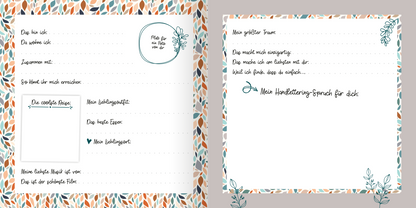 Das bin ich:
Da wohne ich:
Platz für
ein Foto
von dir
Zusammen mit:
So könnt ihr mich erreichen:
Die coolste Reise:
Mein Lieblingsoutfit:
Das beste Essen:
Mein Lieblingsort:
Meine liebste Musik ist von:
Das ist der schönste Film:
Mein größter Traum:
Das macht mich einzigartig:
Das mache ich am liebsten mit dir:
Weil ich finde, dass du einfach...
Mein Handlettering-Spruch für dich: